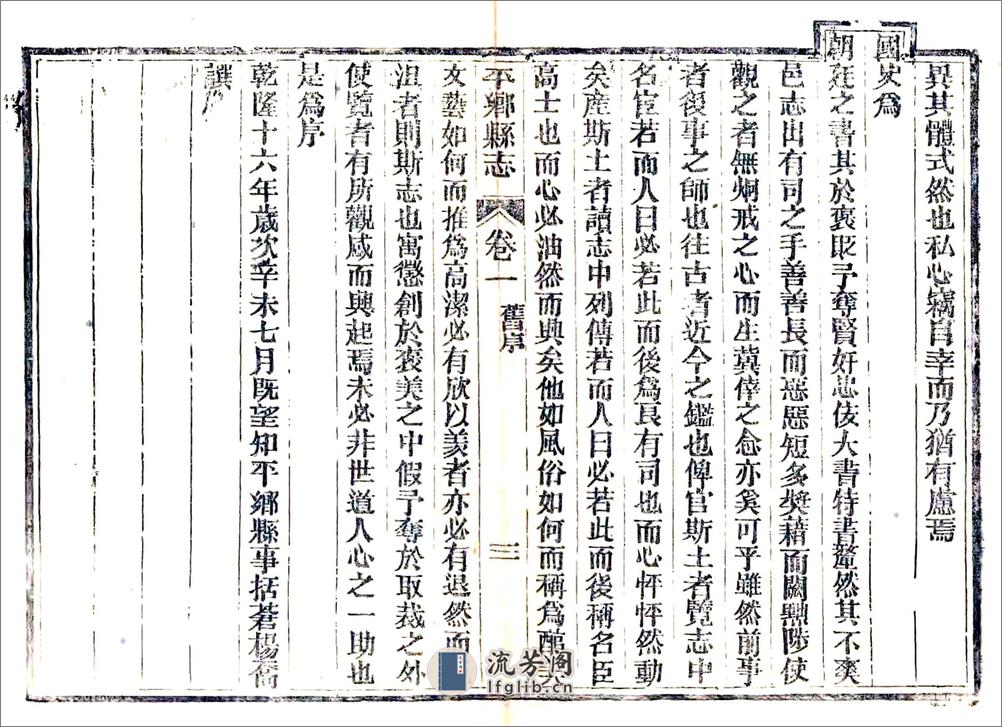 異其體式然也私心竊自幸而乃猶有慮焉
國史爲
朝廷之書其於褒貶予奪賢奸忠佞大書特書釐然其不爽
邑志出有司之手善善長而惡惡短多奬藉而闕黜陟使
觀之者無烱戒之心而生冀倖之念亦奚可乎雖然前事
者後事之師也往古者近今之鑑也俾官斯土者覽志中
名宦若而人曰必若此而後爲良有司也而心怦怦然動
矣產斯土者讀志中列傳若而人曰必若此而後稱名臣
高士也而心必油然而興矣他如風俗如何而稱爲醇美
平鄉縣志
卷一
舊序
三
文藝如何而推爲高潔必有欣以羨者亦必有退然而
沮者則斯志也寓懲創於褒美之中假予奪於取裁之外
使覽者有所觀感而興起焉未必非世道人心之一助也
是爲序
乾隆十六年歲次辛未七月既望知平鄉縣事括蒼楊喬
譔
流芳阁
lfglib.cn